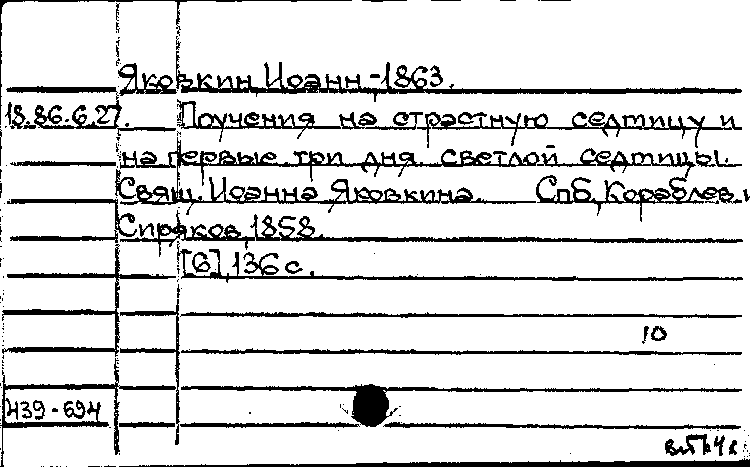 Яковкин, Иоанн -1863.
18.86.6.27. Поучения на страстную седмицу и
на первые три дня светлой седмицы.
Свящ. Иоанна Яковкина. Спб, Кораблев и
Сиряков, 1858.
[6], 136 с.
10
439-694